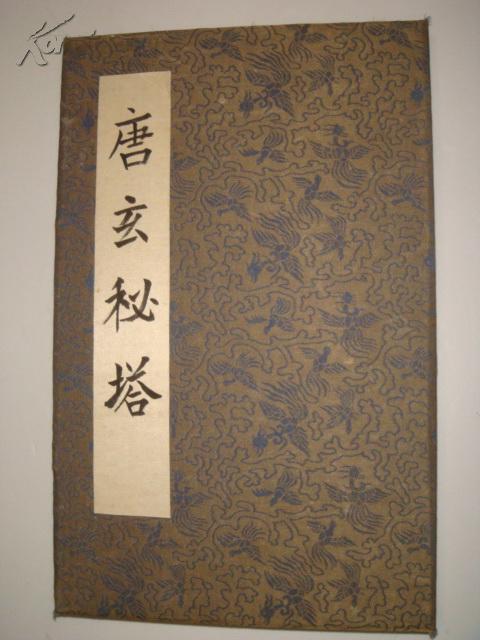 唐玄秘塔